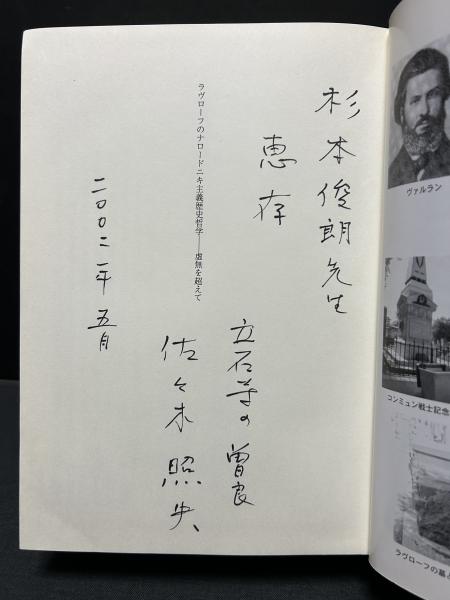 杉本俊朗先生
恵存
ラヴローフのナロードニキ主義歴史哲学――虚無を超えて
立石寺の曽良
佐々木照央
二〇〇二年五月
ヴァルラン
コンミュン戦士記念
ラヴローフの墓